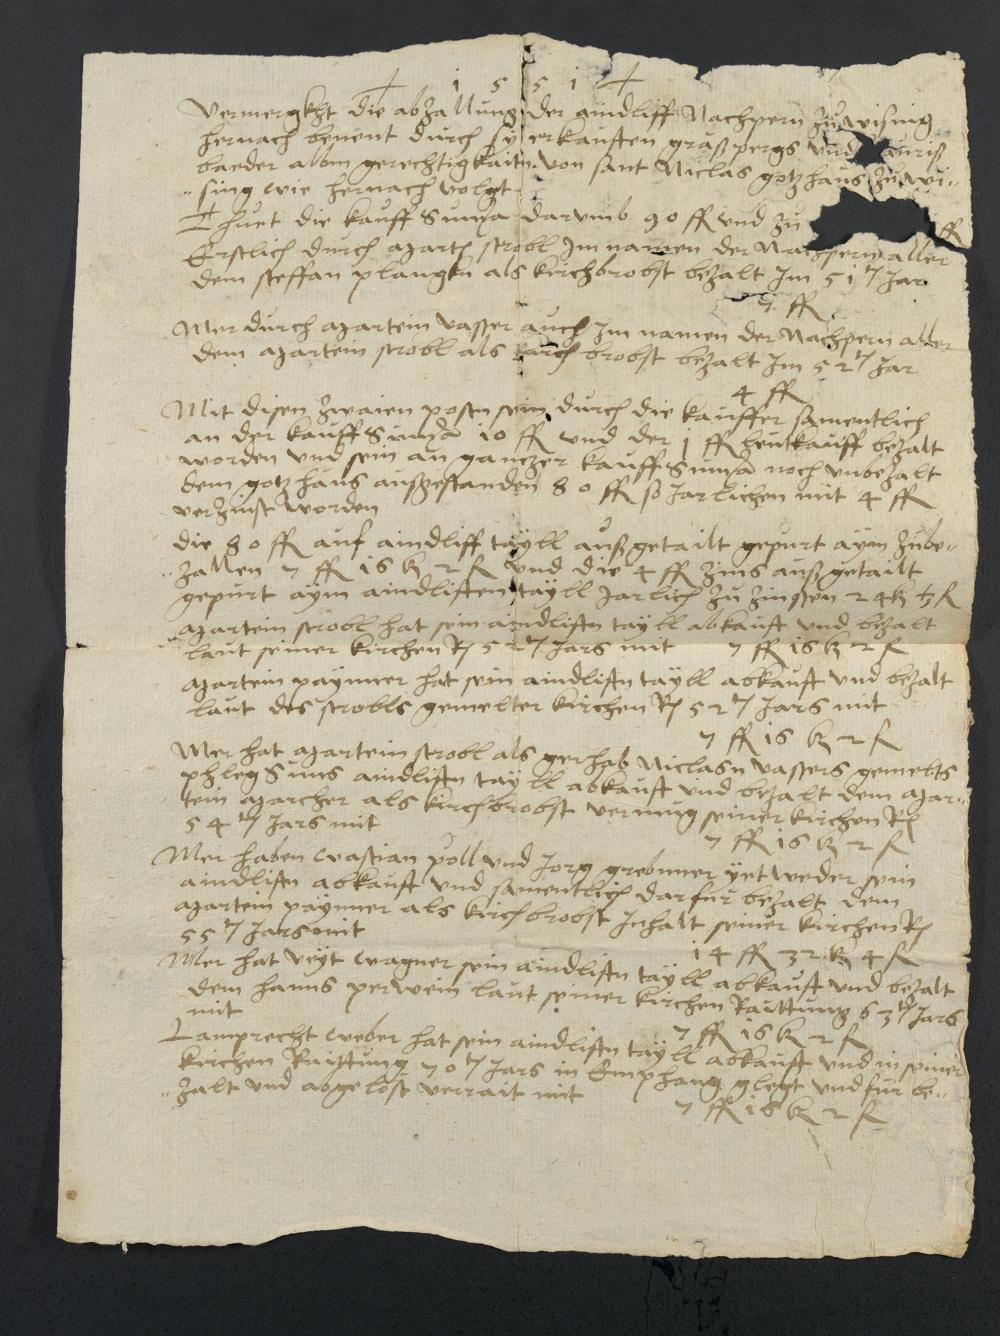 1551
Vermerckht die abzallung der aindliff Nachpern zu wising
hernach benent durch sy erkaufften graß pergs und
baeder albm gerechtigkaitn von sant Niclas gotzhaus zu wi-
sing wie hernach volgt
Thuet die kauff Suma darumb 90 ff und zu
Erstlich durch Martn strobl Im namen der Nachpern aller
dem steffan plangkn als kirchbrobst bezalt Im 51 Jar
7 ff
Mer durch Martein vasser auch Im namen der Nachpern aller
dem Martein strobl als kirchbrobst bezalt Im 52 Jar
4 ff
Mit disen zwaien postn sein durch die kauffer samentlich
an der kauff Suma 10 ff und der 1 ff leutkauff bezalt
worden und sein an gantzer kauff Suma noch unbezalt
dem gotzhaus ausgestanden 80 ff so Jarlichen mit 4 ff
verzinst worden
Die 80 ff auf aindliff tayll ausgetailt gepurt aym zube-
zallen 7 ff 16 k 2 f und die 4 ff zins ausgetailt
gepurt aym aindlifften tayll Jarlich zu zinssen 24 k
Martein strobl hat sein aindlifftn tayll abkaufft und bezalt
laut seiner kirchen R 52 Jars mit 7 ff 16 k 2 f
Martein paymer hat sein aindlifftn tayll abkaufft und bezalt
laut des strobls gemelter kirchen R 52 Jars mit
7 ff 16 k 2 f
Mer hat Martein strobl als gerhab Niclasn vassers gewests
phleg Suns aindlifftn tayll abkaufft und bezalt dem Mar-
tein Marcher als kirchbrobst vermug seiner kirchen R
54 Jars mit
7 ff 16 k 2 f
Mer haben wastian poll und Jorg grebmer yetweder sein
aindlifftn abkaufft und samentlich darfur bezalt dem
Martein paymer als kirchbrobst Inhalt seiner kirchen R
55 Jars mit
14 ff 32 k 4 f
Mer hat veyt wagner sein aindlifftn tayll abkaufft und bezalt
dem hanns perwein laut seiner kirchen Raittung 63 Jars
mit
7 ff 16 k 2 f
Lamprecht weber hat sein aindlifftn tayll abkaufft und in seiner
kirchen Raittung 70 Jars in Emphang glegt und fur be-
zalt und abgelost verrait mit
7 ff 16 k 2 f